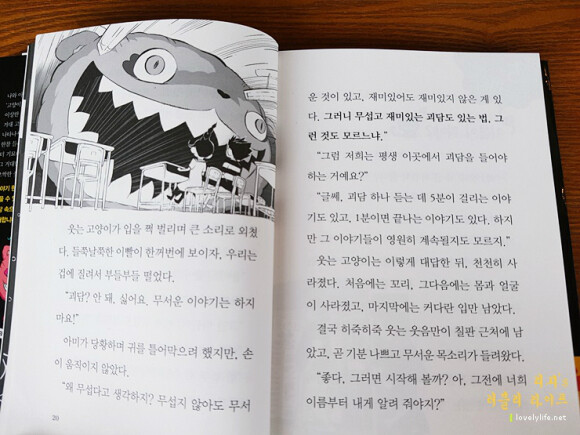 웃는 고양이가 입을 쩍 벌리며 큰 소리로 외쳤
다. 들쭉날쭉한 이빨이 한꺼번에 보이자, 우리는
겁에 질려서 부들부들 떨었다.
"괴담? 안 돼, 싫어요. 무서운 이야기는 하지
마요!"
아미가 당황하며 귀를 틀어막으려 했지만, 손
이 움직이지 않았다.
"왜 무섭다고 생각하지? 무섭지 않아도 무서
20
운 것이 있고, 재미있어도 재미있지 않은 게 있
다. 그러니 무섭고 재미있는 괴담도 있는 법, 그
런 것도 모르느냐."
"그럼 저희는 평생 이곳에서 괴담을 들어야
하는 거예요?"
"글쎄, 괴담 하나 듣는 데 5분이 걸리는 이야
기도 있고, 1분이면 끝나는 이야기도 있다. 하지
만 그 이야기들이 영원히 계속될지도 모르지."
웃는 고양이는 이렇게 대답한 뒤, 천천히 사
라졌다. 처음에는 꼬리, 그다음에는 몸과 얼굴
이 사라졌고, 마지막에는 커다란 입만 남았다.
결국 히죽히죽 웃는 웃음만이 칠판 근처에 남
았고, 곧 기분 나쁘고 무서운 목소리가 들려왔다.
"좋다, 그러면 시작해 볼까? 아, 그전에 너희
이름부터 내게 알려 줘야지?"
러블리 라이프
lovelylife.net